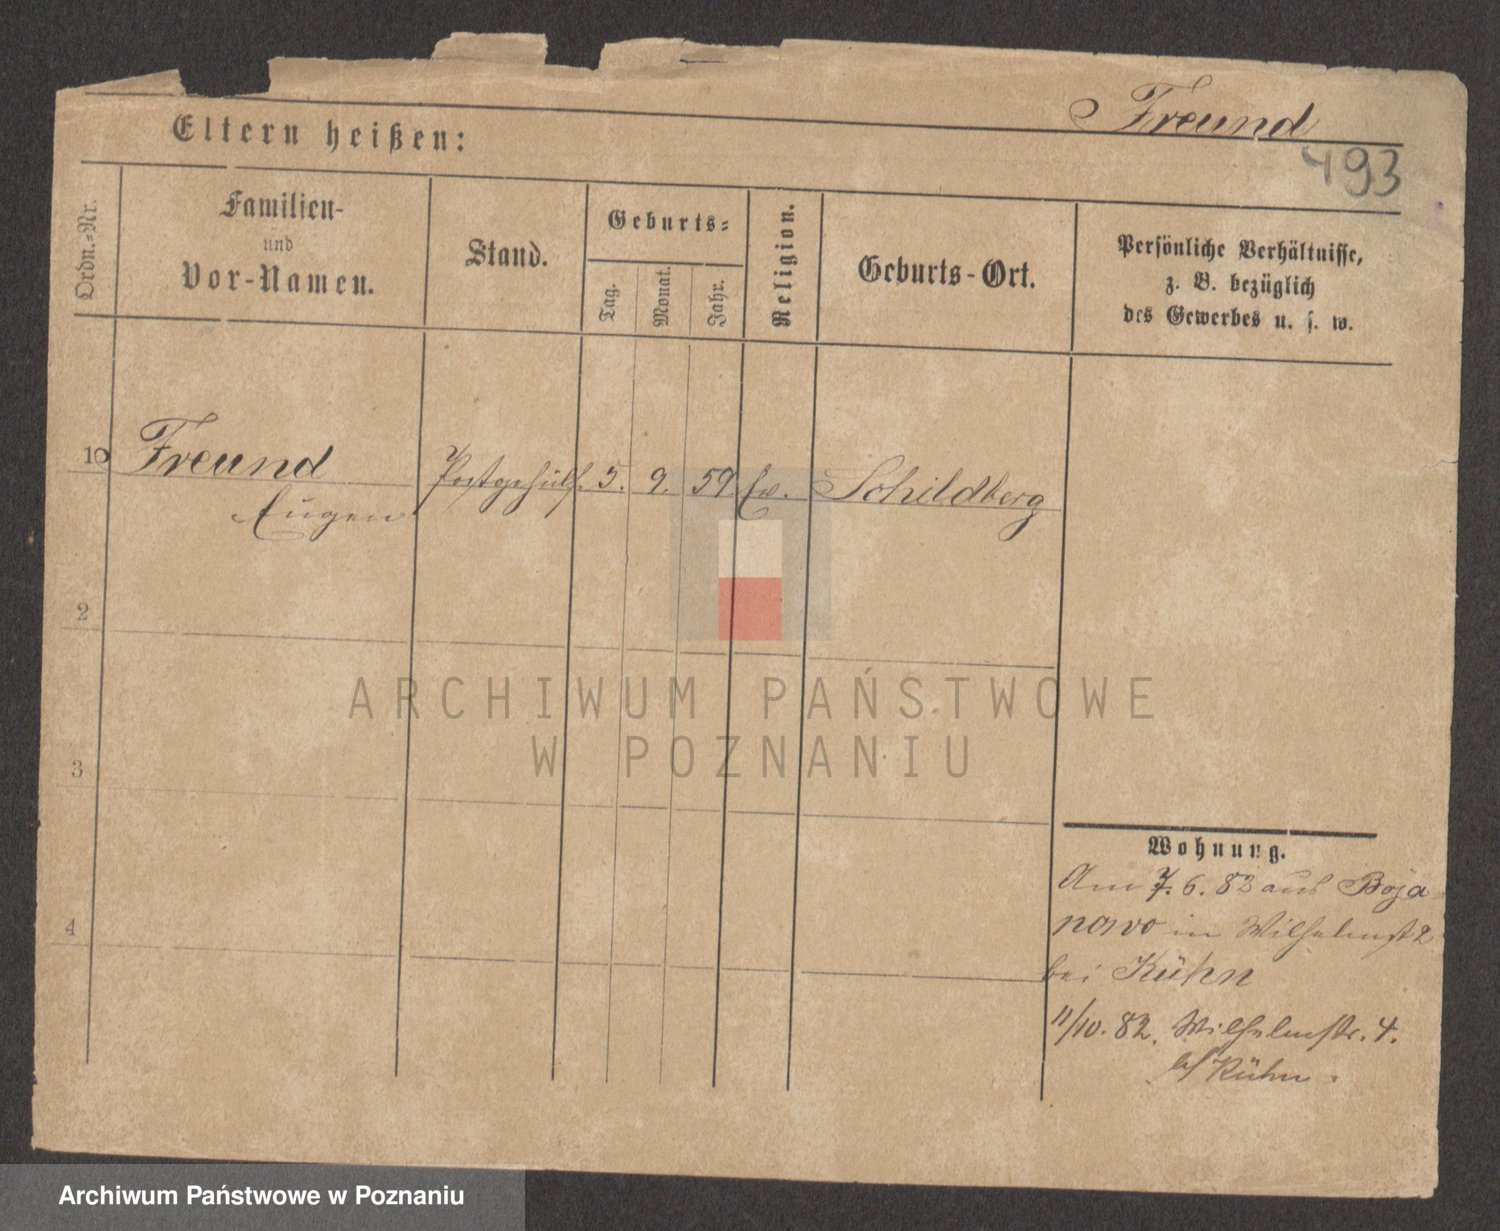 Freund
493
Eltern heißen:
Ordn.-Nr.
Familien-
und
Vor-Namen.
Stand.
Geburts-
Tag.
Monat.
Jahr.
Religion.
Geburts-Ort.
Persönliche Verhältnisse,
z. B. bezüglich
des Gewerbes u. s. w.
10 Freund Postgehülf. 5. 9. 59 Ev. Schildberg
Eugen
2
3
4
ARCHIWUM PAŃSTWOWE
W POZNANIU
Wohnung.
Am 7. 6. 82 aus Boja-
nowo in Wilhelmst 2
bei Kühn
11/10. 82. Wilhelmstr. 4.
b/ Kühn.
Archiwum Państwowe w Poznaniu